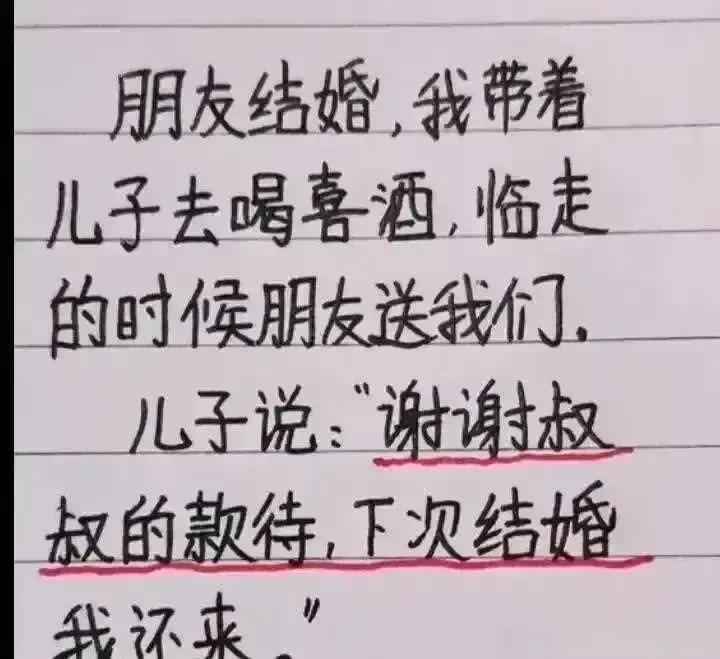 朋友结婚,我带着
儿子去喝喜酒,临走
的时候朋友送我们.
儿子说:“谢谢叔
叔的款待,下次结婚
我还来.”